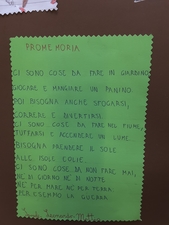 PROMEMORIA
CI SONO COSE DA FARE IN GIARDINO
GIOCARE E MANGIARE UN PANINO
POI BISOGNA ANCHE SFOGARSI,
CORRERE E DIVERTIRSI.
CI SONO COSE DA FARE NEL FIUME,
TUFFARSI E ACCENDERE UN LUME.
BISOGNA PRENDERE IL SOLE
ALLE ISOLE EOLIE.
CI SONO COSE DA NON FARE MAI,
NÉ DI GIORNO NÉ DI NOTTE
NÉ PER MARE NÉ PER TERRA,
PER ESEMPIO LA GUERRA.